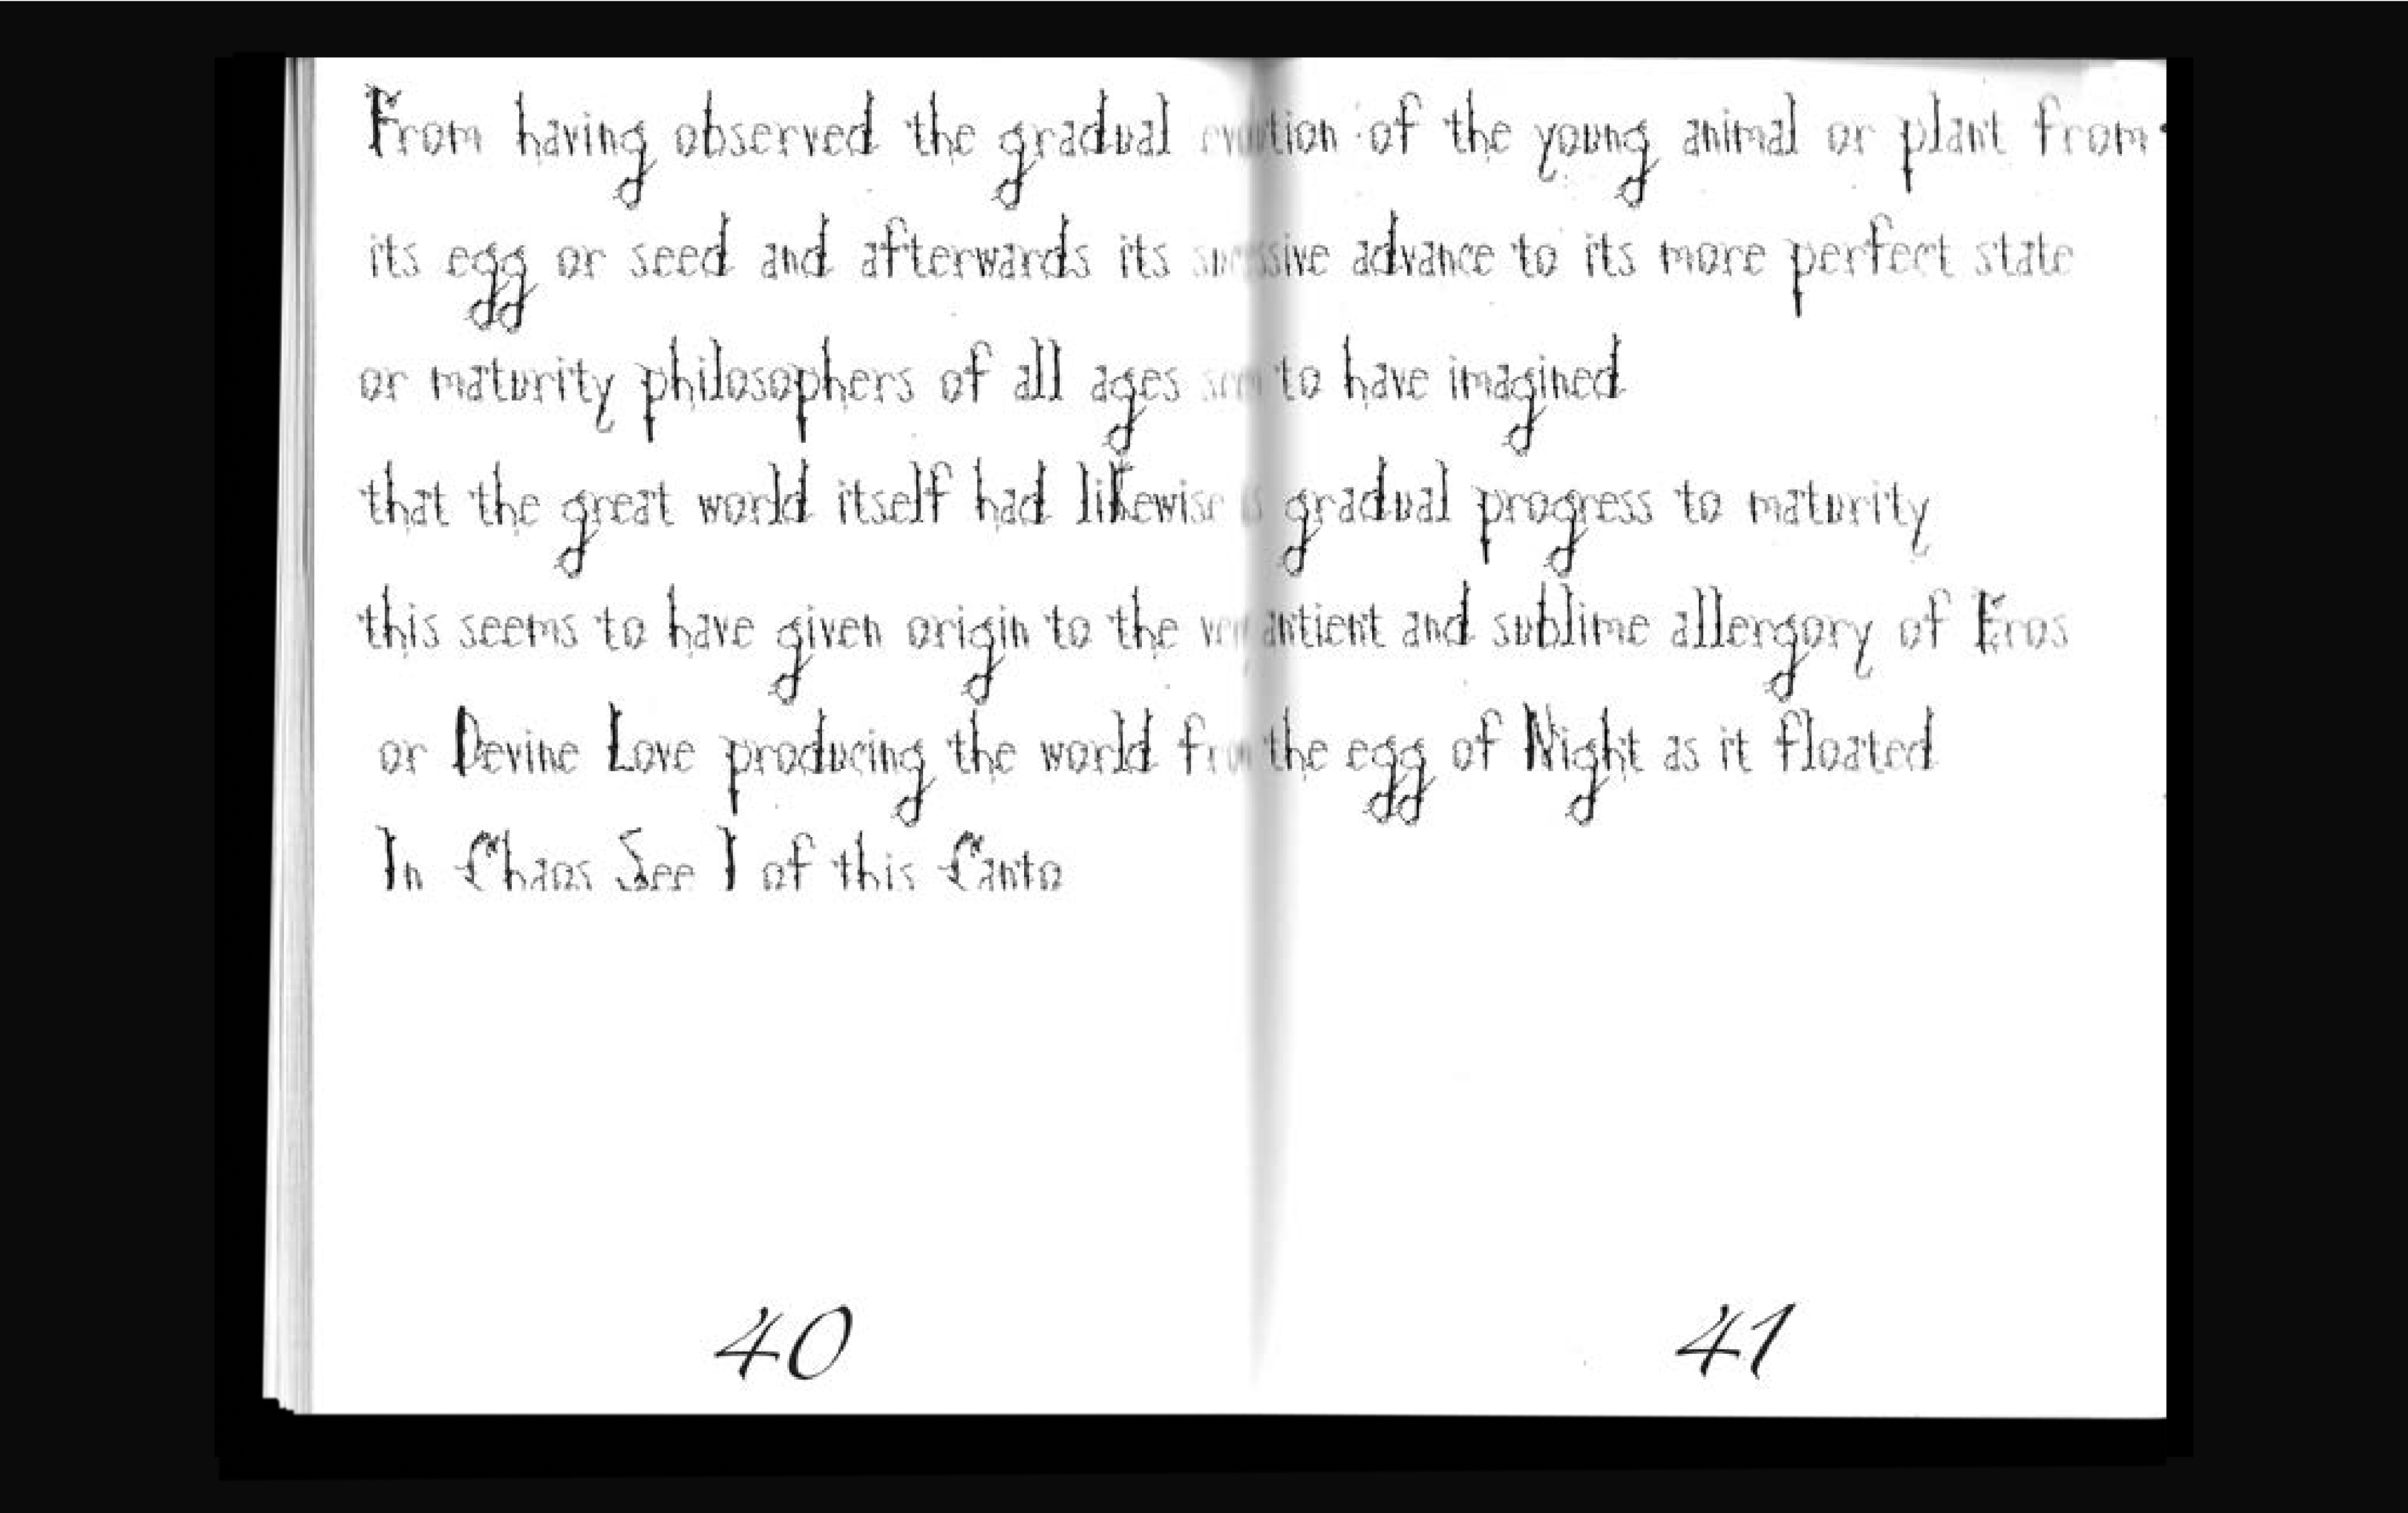 From having observed the gradual of the young animal or plant from
its egg or seed and afterwards its advance to its more perfect state
or maturity philosophers of all ages to have imagined
that the great world itself had likewise gradual progress to maturity
this seems to have given origin to the antient and sublime allergory of Eros
or Devine Love producing the world from the egg of Night as it floated
In Chaos See I of this Canto
40
41